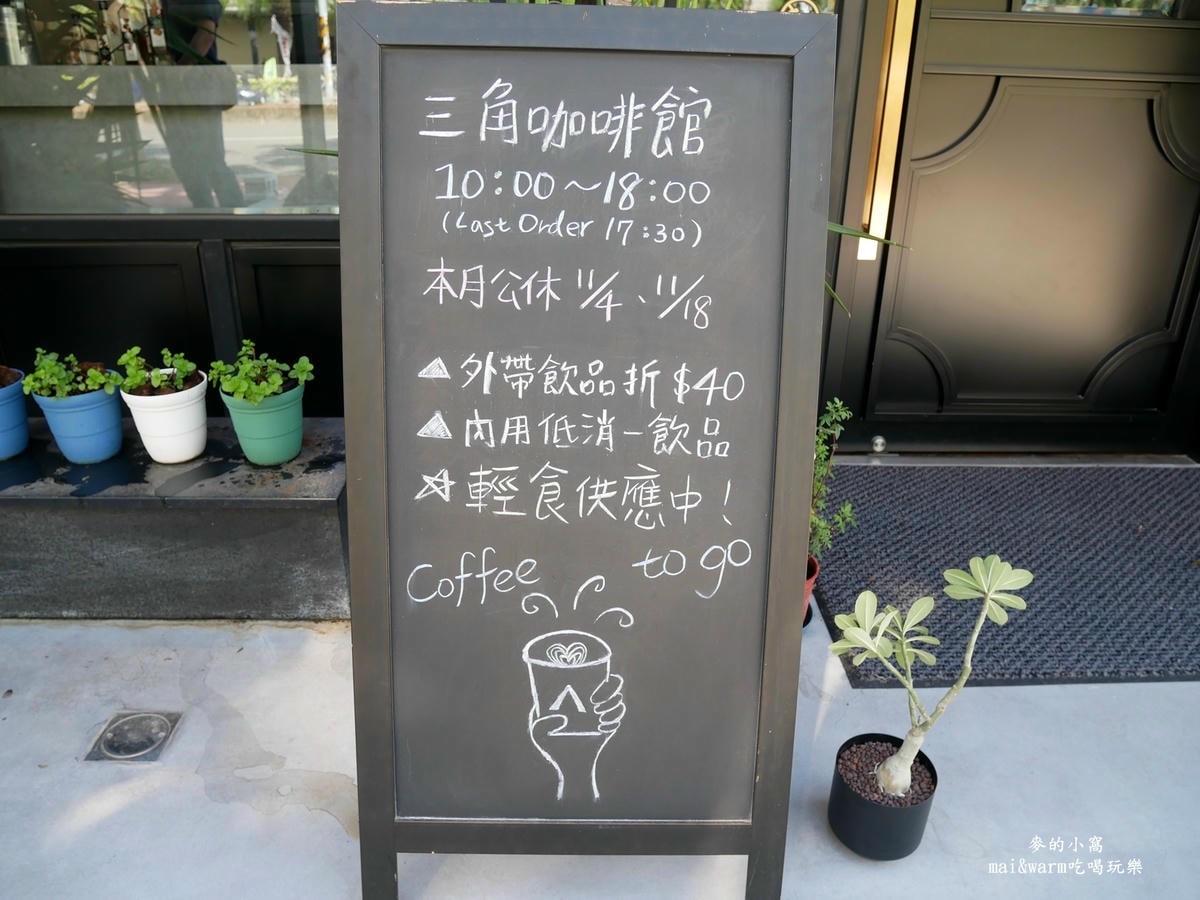 三角咖啡館
10:00～18:00
(Last Order 17:30)
本月公休 11/4、11/18
▲外帶飲品折 $40
▲內用低消一飲品
☆輕食供應中！
Coffee to go
麥的小窩
mai&warm吃喝玩樂